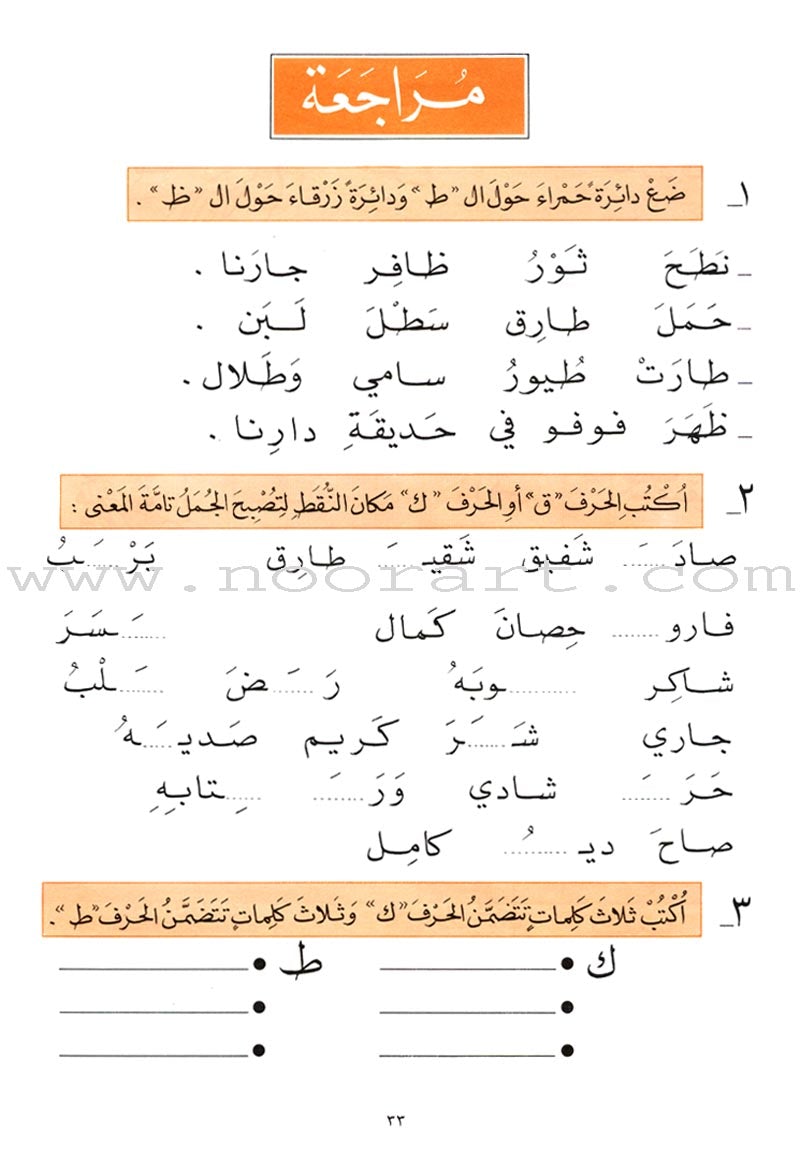 مُرَاجَعَة
١_ ضَعْ دائِرَةً حَمْراءَ حَوْلَ ال «ط» وَدائِرَةً زَرْقاءَ حَوْلَ ال «ظ» .
_ نَطَحَ ثَوْرُ ظافِر جارَنا .
_ حَمَلَ طارِق سَطْلَ لَبَن .
_ طارَتْ طُيورُ سامي وَطَلال .
_ ظَهَرَ فوفو في حَديقَةِ دارِنا .
٢_ اُكْتُبِ الحَرْفَ «ق» أو الحَرْفَ «ك» مَكانَ النُّقَطِ لِتُصْبِحَ الجُمَلُ تامَّةَ المَعْنى :
صادَ...َ.. شَفيق شَقيـ...َ.. طارِق بَرْ...َ..بُ
www.noorart.com
فارو....... حِصانَ كَمال ...َ..سَرَ
شاكِر .......وبَهُ رَ...َ..ضَ ...َ..لْبُ
جاري شَـ...َ..رَ كَريم صَديـ...َ..هُ
حَرَ...َ.. شادي وَرَ...َ.. ...ِ..تابِهِ
صاحَ ديـ...ُ.. كامِل
٣_ اُكْتُبْ ثَلاثَ كَلِماتٍ تَتَضَمَّنُ الحَرْفَ «ك» وَثَلاثَ كَلِماتٍ تَتَضَمَّنُ الحَرْفَ «ط» .
ك • ________ ط • ________
• ________ • ________
• ________ • ________
٣٣